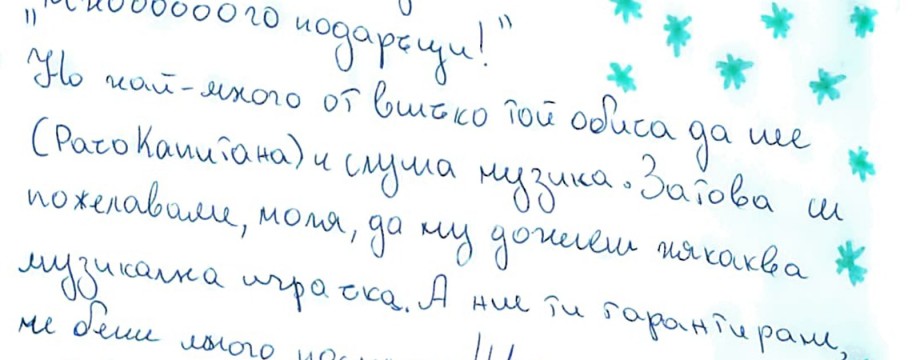 "Мнооооого подаръци!"
Но най-много от всичко той обича да яде
(Рачо Капитана) и слуша музика. Затова си
пожелаваме, моля, да му донесеш някаква
музикална играчка. А ние ти гарантираме,
че беше много